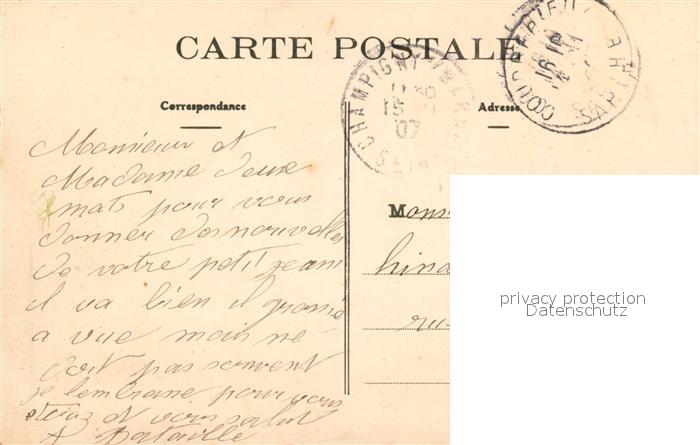 CARTE POSTALE
Correspondance
Adresse
CHAMPIGNY
15
07
COUDRECIEUX
SARTHE
16
Monsieur et
Madame deux
mots pour vous
donner des nouvelles
de votre petit jean
il va bien il grandi
a vue mais ne
dort pas souvent
je l'embrasse pour vous
et vous salut
A Bataille
Mons
hina
ru
privacy protection
Datenschutz